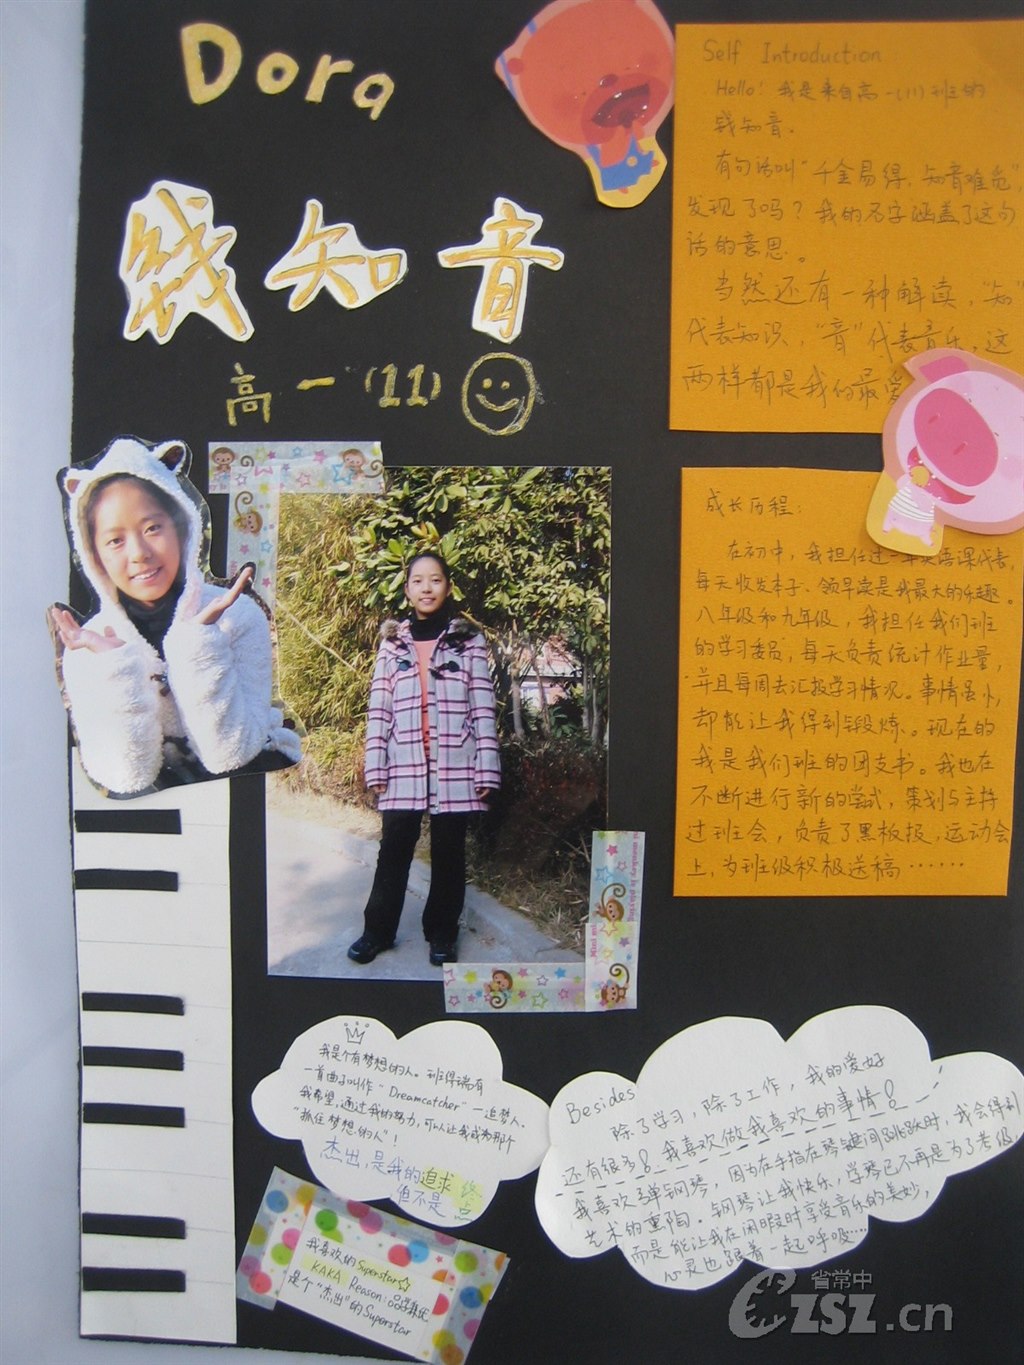 Dora
钱知音
高一(11)
Self Introduction
Hello! 我是来自高一(11)班的
钱知音。
有句话叫“千金易得,知音难觅”,
发现了吗?我的名字涵盖了这句
话的意思。
当然还有一种解读,“知”
代表知识,“音”代表音乐,这
两样都是我的最爱
成长历程:
在初中,我担任过一年英语课代表,
每天收发本子、领早读是我最大的乐趣。
八年级和九年级,我担任我们班
的学习委员,每天负责统计作业量,
并且每周去汇报学习情况。事情虽小,
却能让我得到锻炼。现在的
我是我们班的团支书。我也在
不断进行新的尝试,策划与主持
过班会,负责了黑板报,运动会
上,为班级积极送稿……
我是个有梦想的人。班得瑞有
一首曲子叫作“Dreamcatcher”—追梦人。
我希望,通过我的努力,可以让我成为那个
“抓住梦想的人”!
杰出,是我的追求
但不是 终点
我喜欢的Superstar☆
KAKA Reason:品学兼优
是个“杰出”的Superstar
Besides
除了学习,除了工作,我的爱好
还有很多!我喜欢做我喜欢的事情!
我喜欢弹钢琴,因为在手指在琴键间跳跃时,我会得到
艺术的熏陶。钢琴让我快乐,学琴已不再是为了考级,
而是能让我在闲暇时享受音乐的美妙,
心灵也跟着一起呼吸……
省常中
CZSZ.cn